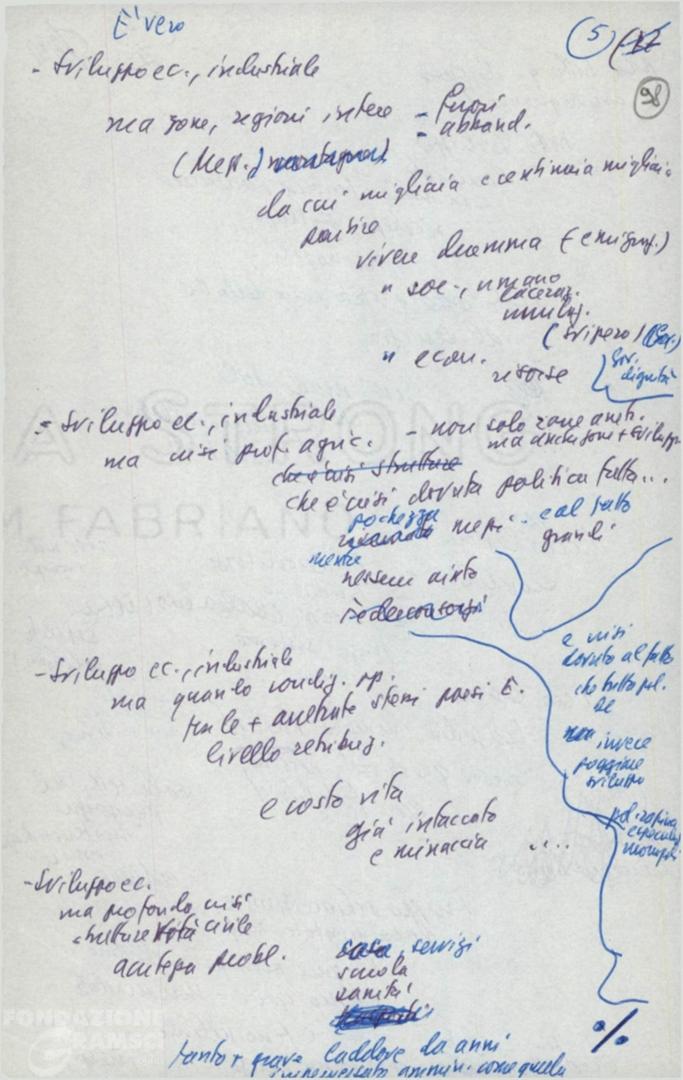 È vero
5
98
- Sviluppo ec., industriale
ma zone, regioni intere - fuori
- abband.
(Mer.)
da cui migliaia e centinaia migliaia
partire
vivere dramma (emigraz.)
" soc., umano
laceraz.
umiliaz.
(Svizzera)
" econ.
risorse
dignità
- Sviluppo ec., industriale
ma crisi prof. agric. - non solo zone arretr.
ma anche zone + svilupp.
che è crisi strutture
che è crisi dovuta politica fatta...
pochezza
mezzi e al fatto
grandi
mentre
nessun aiuto
e crisi
dovuta al fatto
che tutta pol.
invece
poggiare
sviluppo
- Sviluppo ec., industriale
ma quando condiz. op.
tra le + arretrate stessi paesi E.
livello retribuz.
e costo vita
già intaccato
e minaccia ...
pol. rapina
monopoli
- Sviluppo ec.
ma profonda crisi
strutture vita civile
acutezza probl.
casa, servizi
scuola
sanità
%
tanto + grave laddove da anni
come quella
FONDAZIONE
GRAMSCI
M FABRIANO